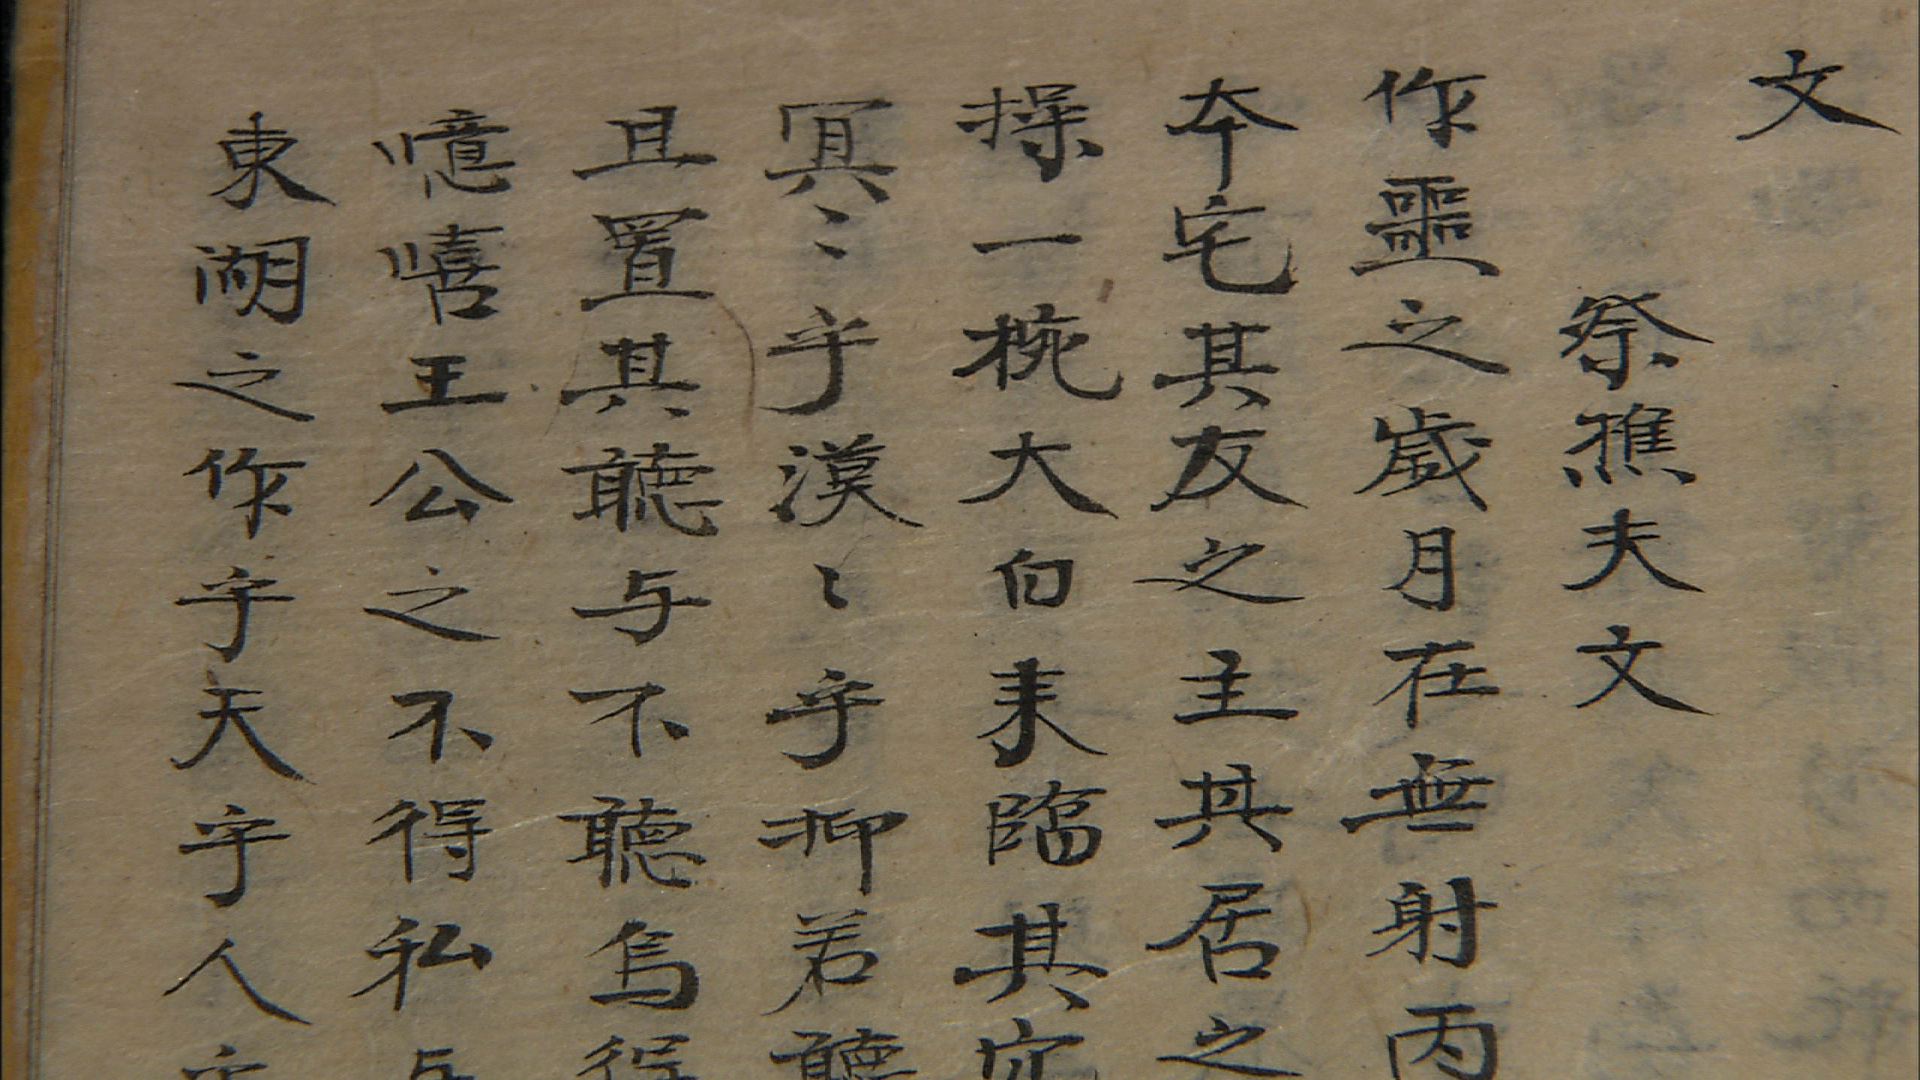 文
祭樵夫文
作噩之歲月在無射丙
本宅其友之主其居之
操一椀大白来臨其穴
冥〻乎漠〻乎抑若聽
且置其聽与不聽烏得
噫嘻王公之不得私与
東湖之作乎天乎人乎